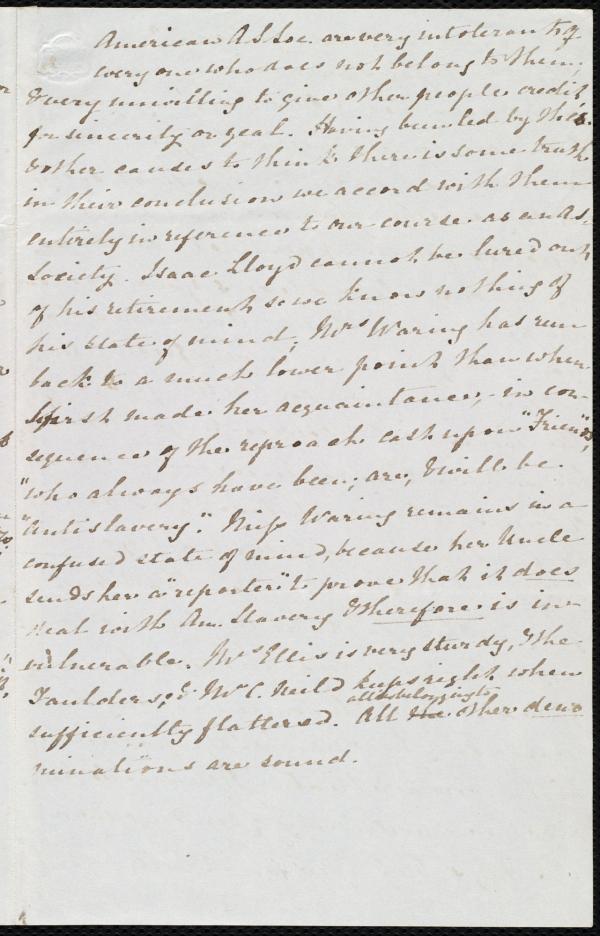 American A S Soc. are very intolerant of
every one who does not belong to them,
& very unwilling to give other people credit
for sincerity or zeal. Having been led by these
& other causes to think there is some truth
in their conclusion we accord with them
entirely in reference to our course as an As-
Society. Isaac Lloyd cannot be lured out
of his retirement so we know nothing of
his state of mind; Mrs Waring has run
back to a much lower point than when
I first made her acquaintance, - in con-
sequence of the reproach cast upon "Friends,
"who always have been, are, & will be
"Antislavery". Miss Waring remains in a
confused state of mind, because her Uncle
sends her a "reporter" to prove that it does
deal with Am. Slavery & therefore is in-
vulnerable. Mrs Ellis is very sturdy, & the
Taulders, & Mr C. Neild keeps right when
sufficiently flattered. All those belonging to other deno
minations are sound.